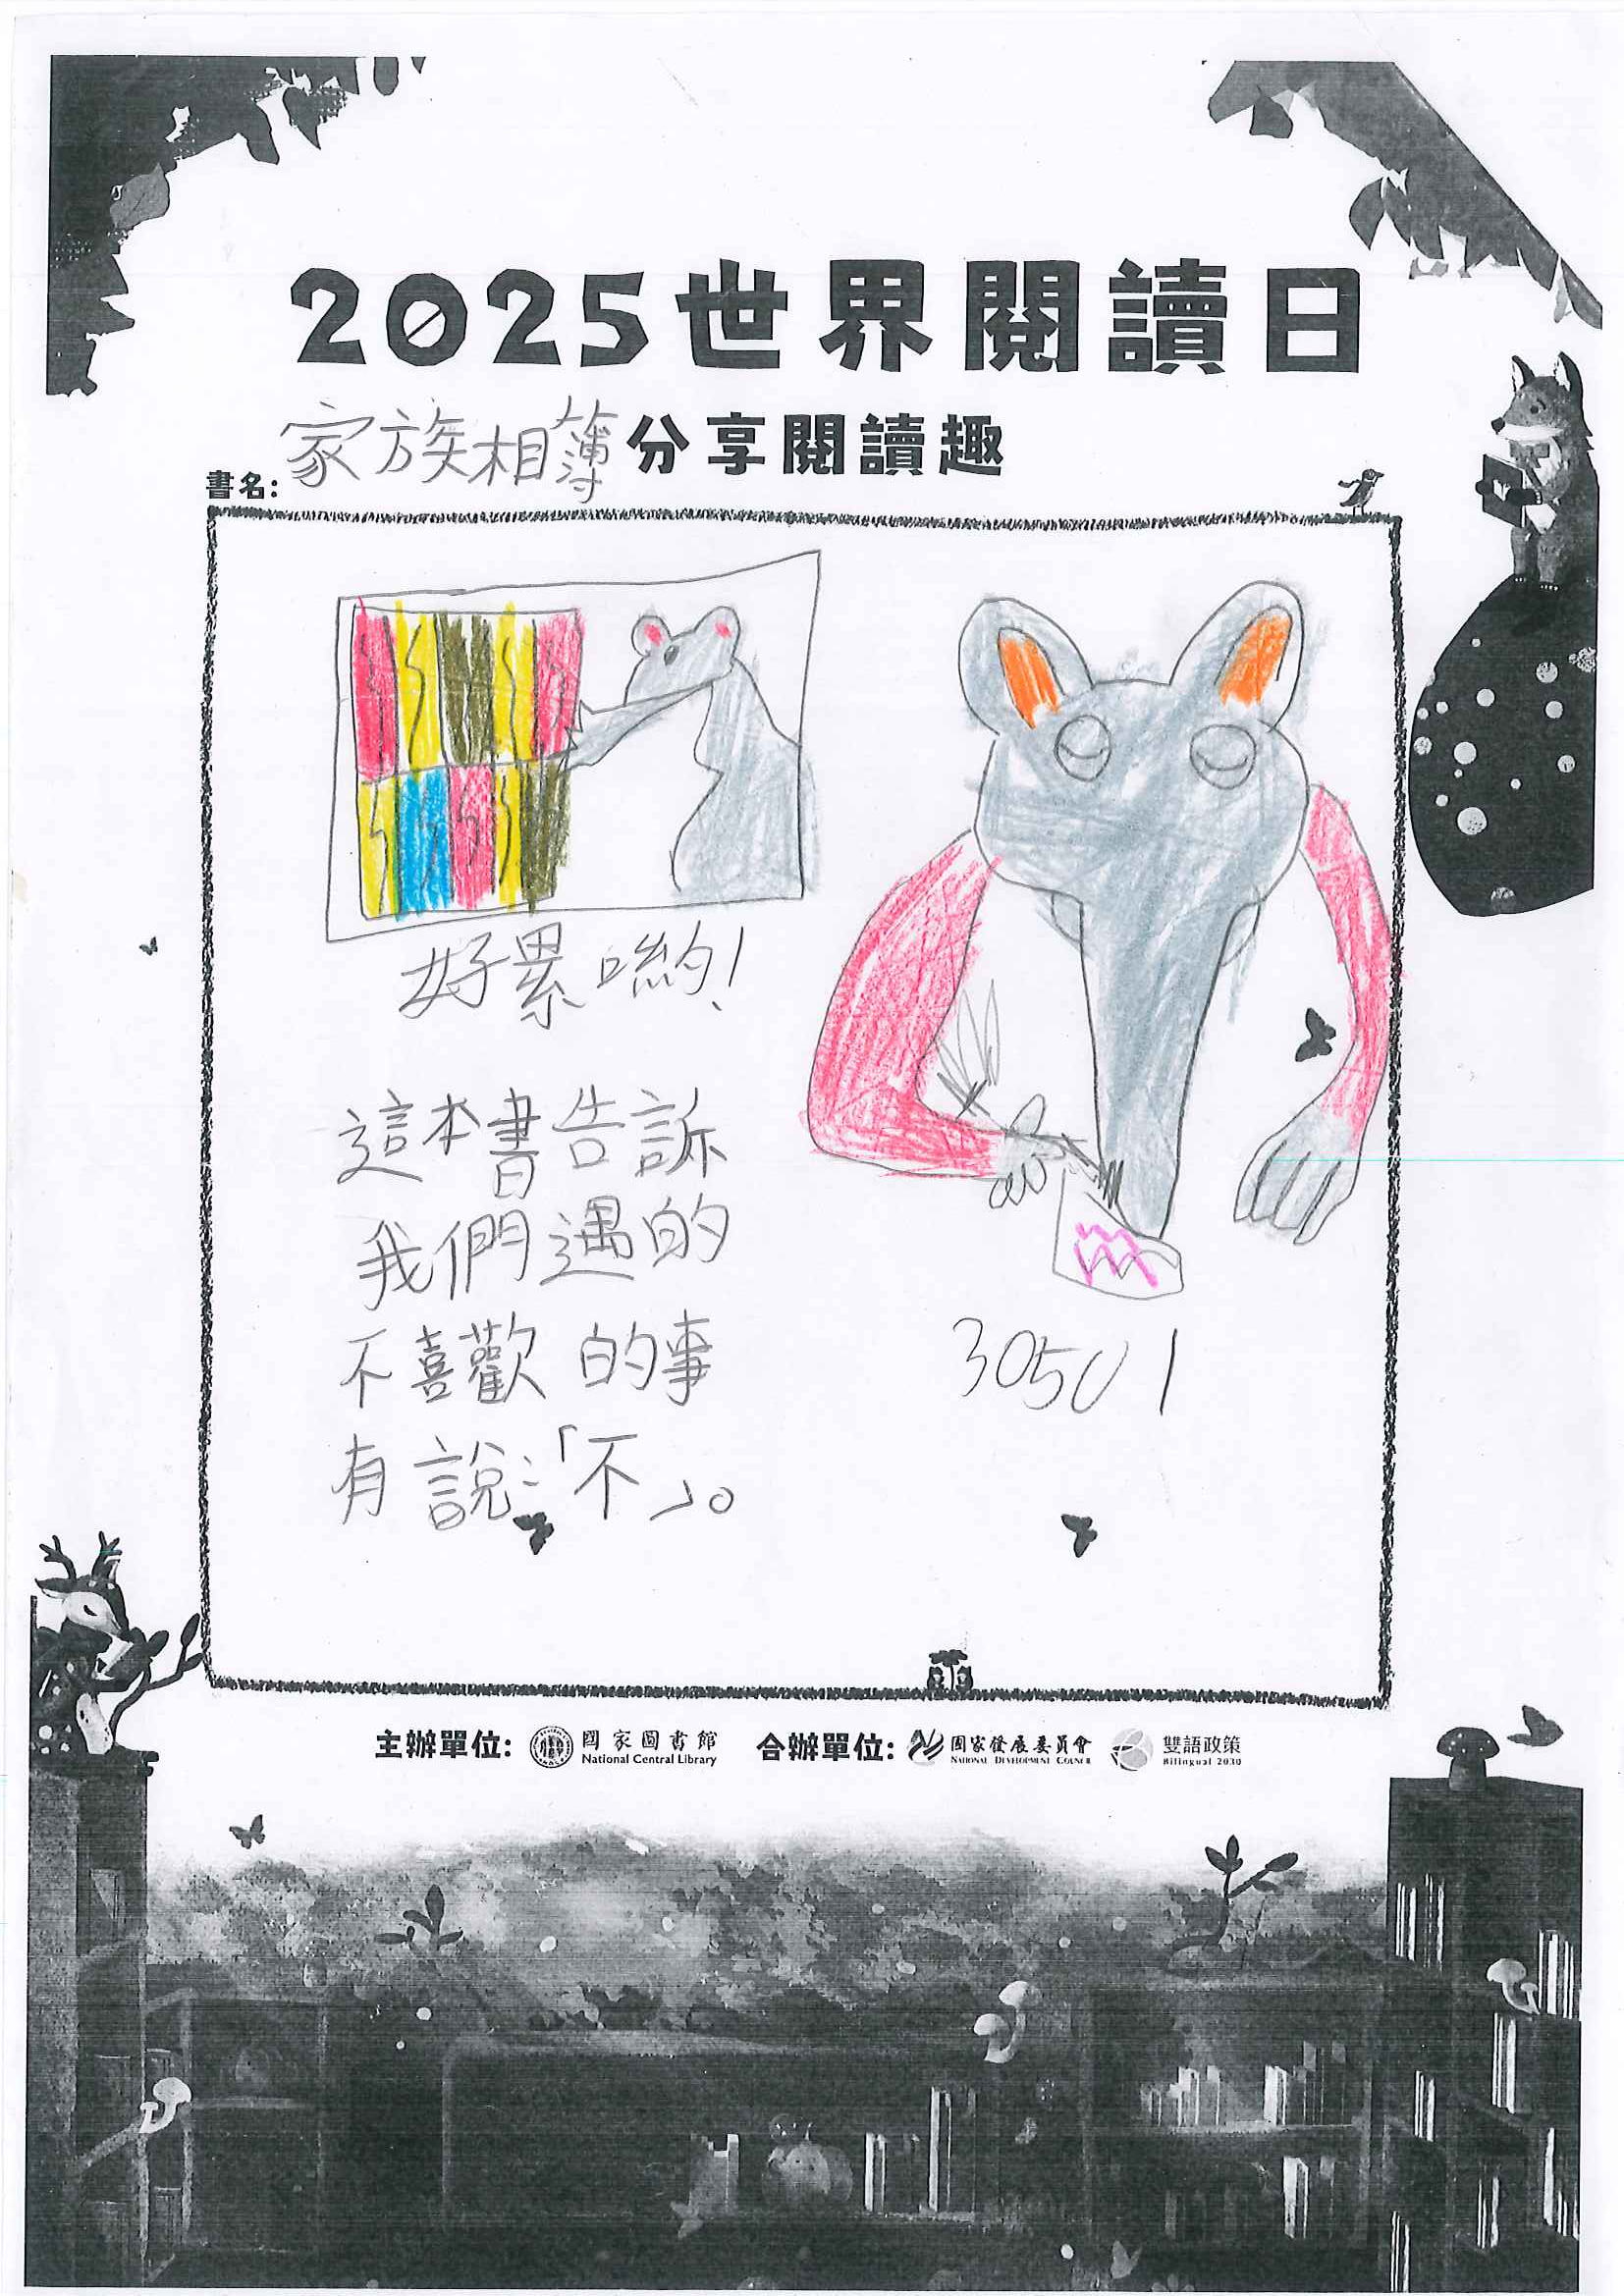 2025世界閱讀日
家族相簿分享閱讀趣
書名:
好累喲!
這本書告訴
我們遇的
不喜歡的事
有說:「不」。
30501
主辦單位: 國家圖書館 National Central Library 合辦單位: 國家發展委員會 NATIONAL DEVELOPMENT COUNCIL 雙語政策 Bilingual 2030